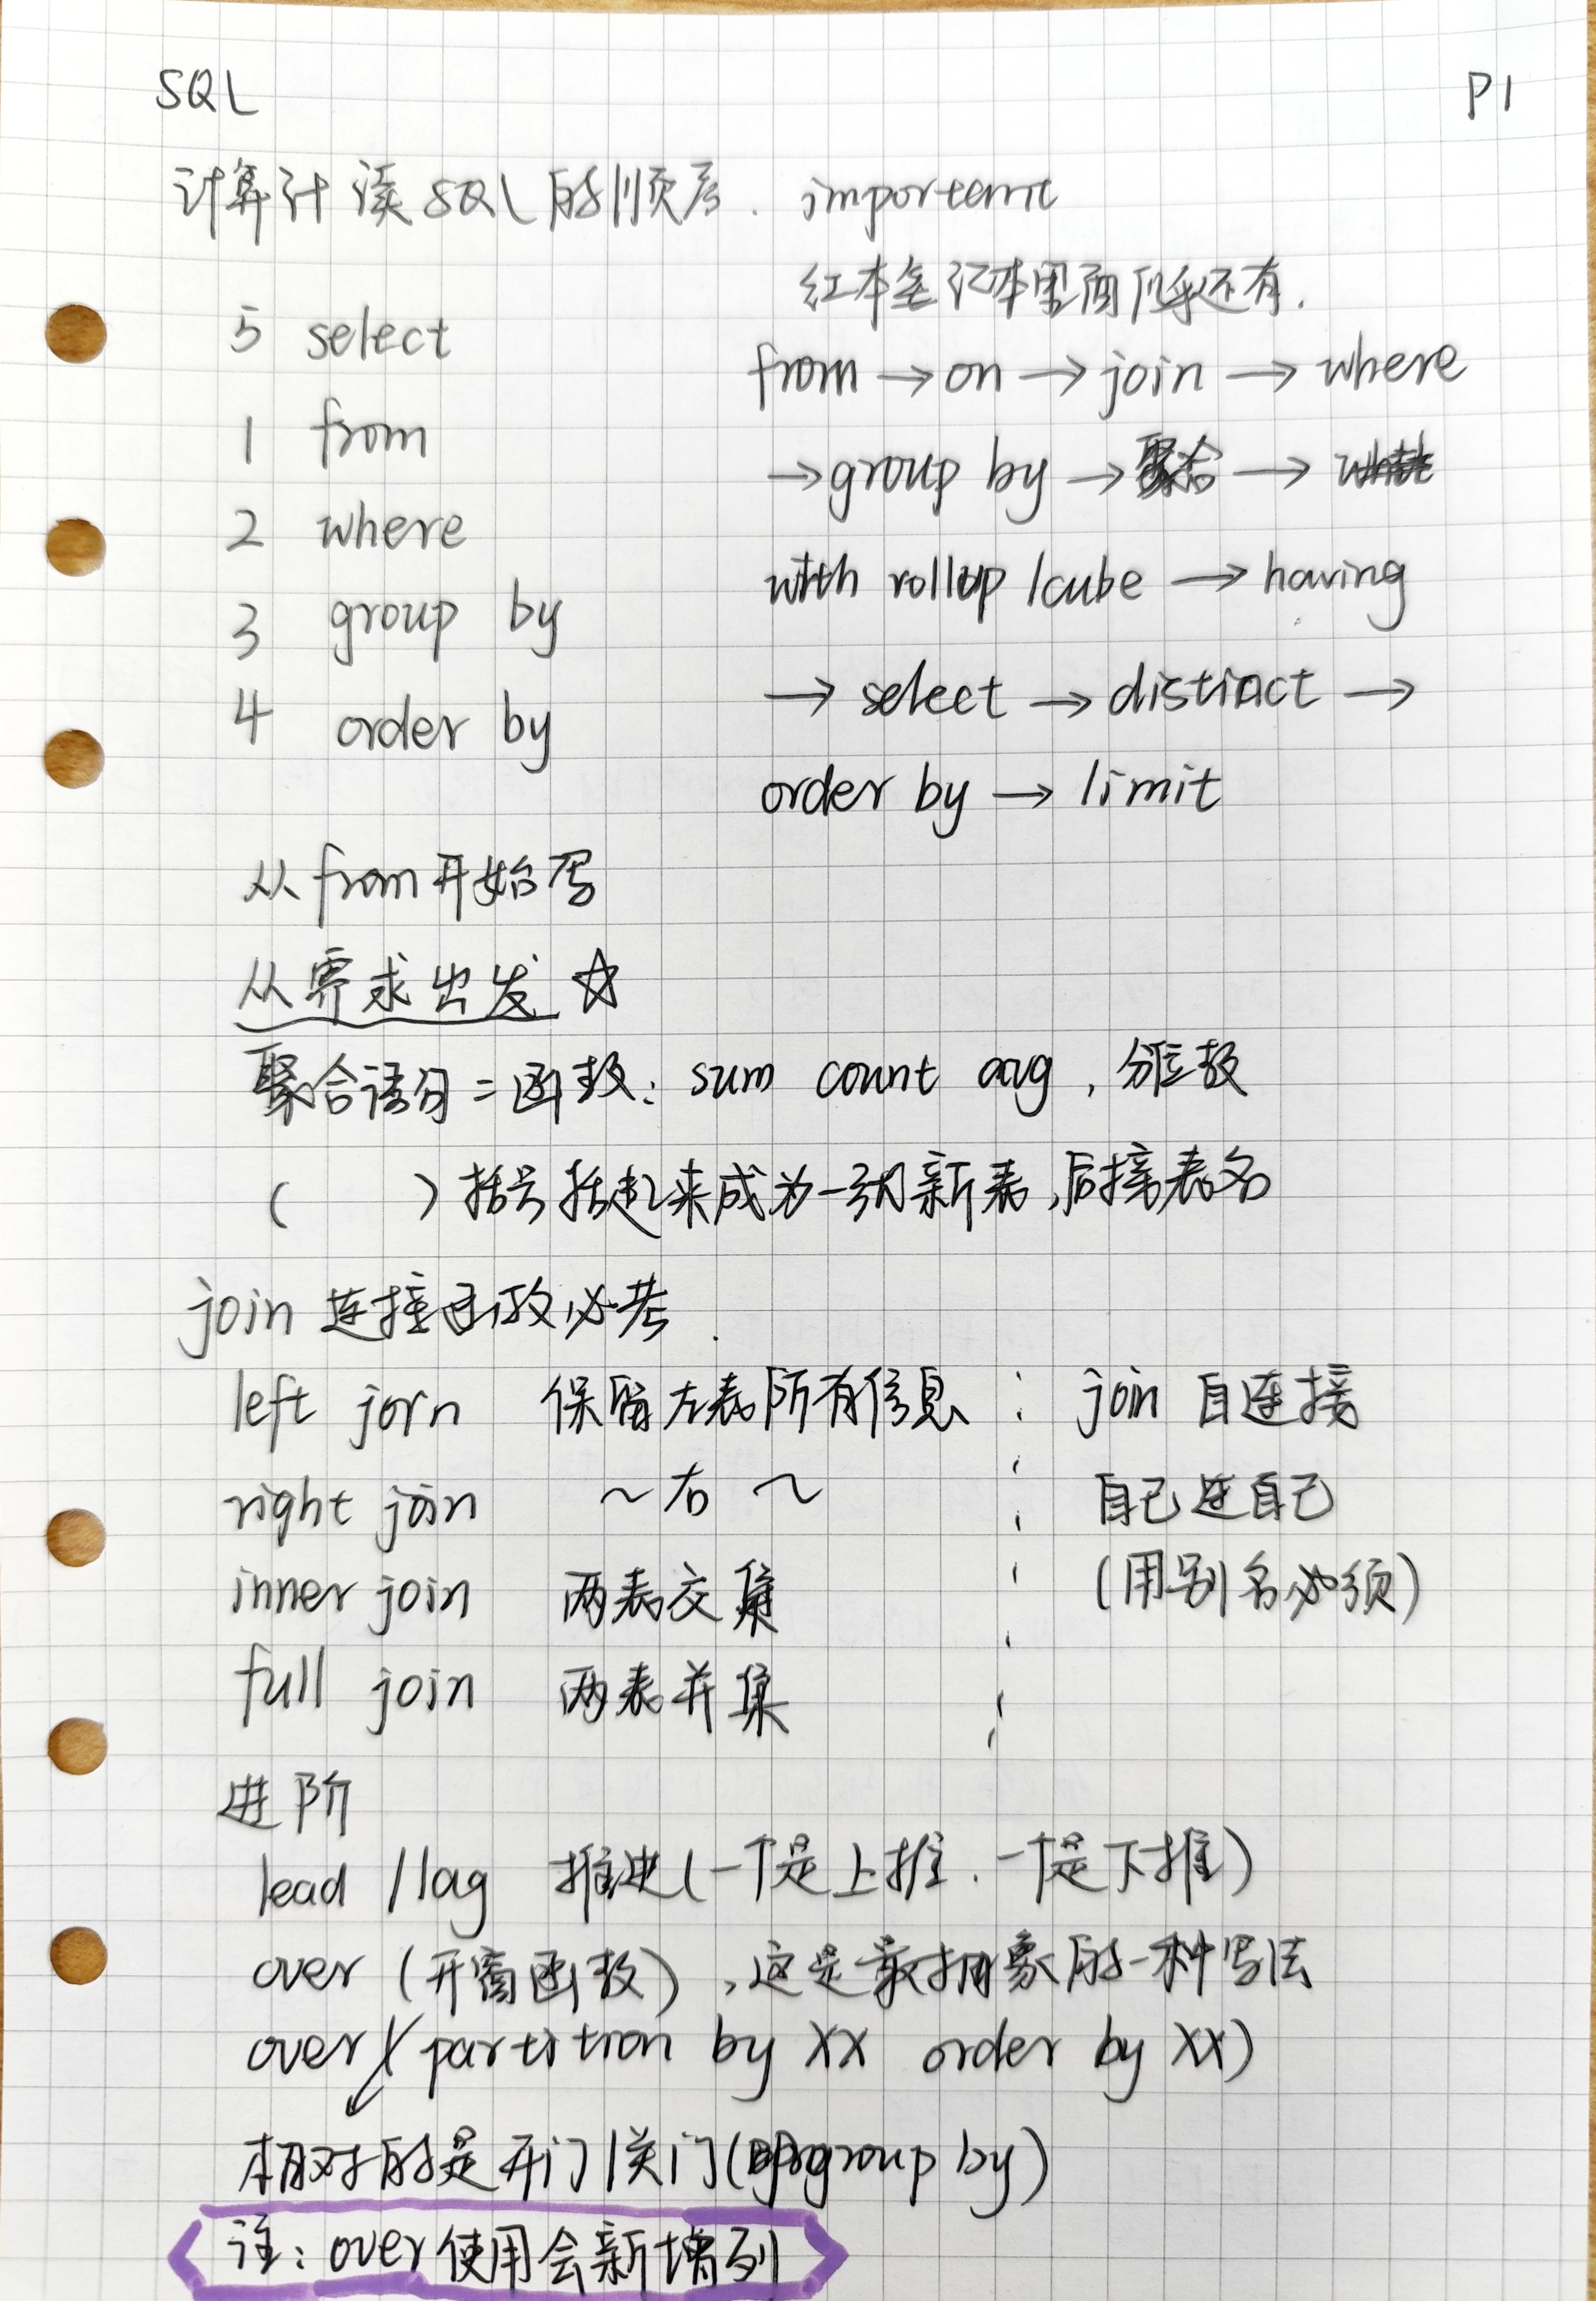 SQL
P1
计算计读SQL的顺序. importent
红本笔记本里面似乎还有.
5 select
1 from
2 where
3 group by
4 order by
from → on → join → where
→ group by → 聚合 →
with rollup /cube → having
→ select → distinct →
order by → limit
从from开始写
从需求出发 ☆
聚合语句=函数: sum count avg, 分位数
( ) 括号括起来成为一张新表,后接表名
join 连接函数必考.
left join 保留左表所有信息
right join ~右~
inner join 两表交集
full join 两表并集
join 自连接
自己连自己
(用别名必须)
进阶
lead / lag 推进(一个是上推. 一个是下推)
over (开窗函数), 这是最抽象的一种写法
over (partition by XX order by XX)
相对的是开门关门(即group by)
注: over使用会新增列